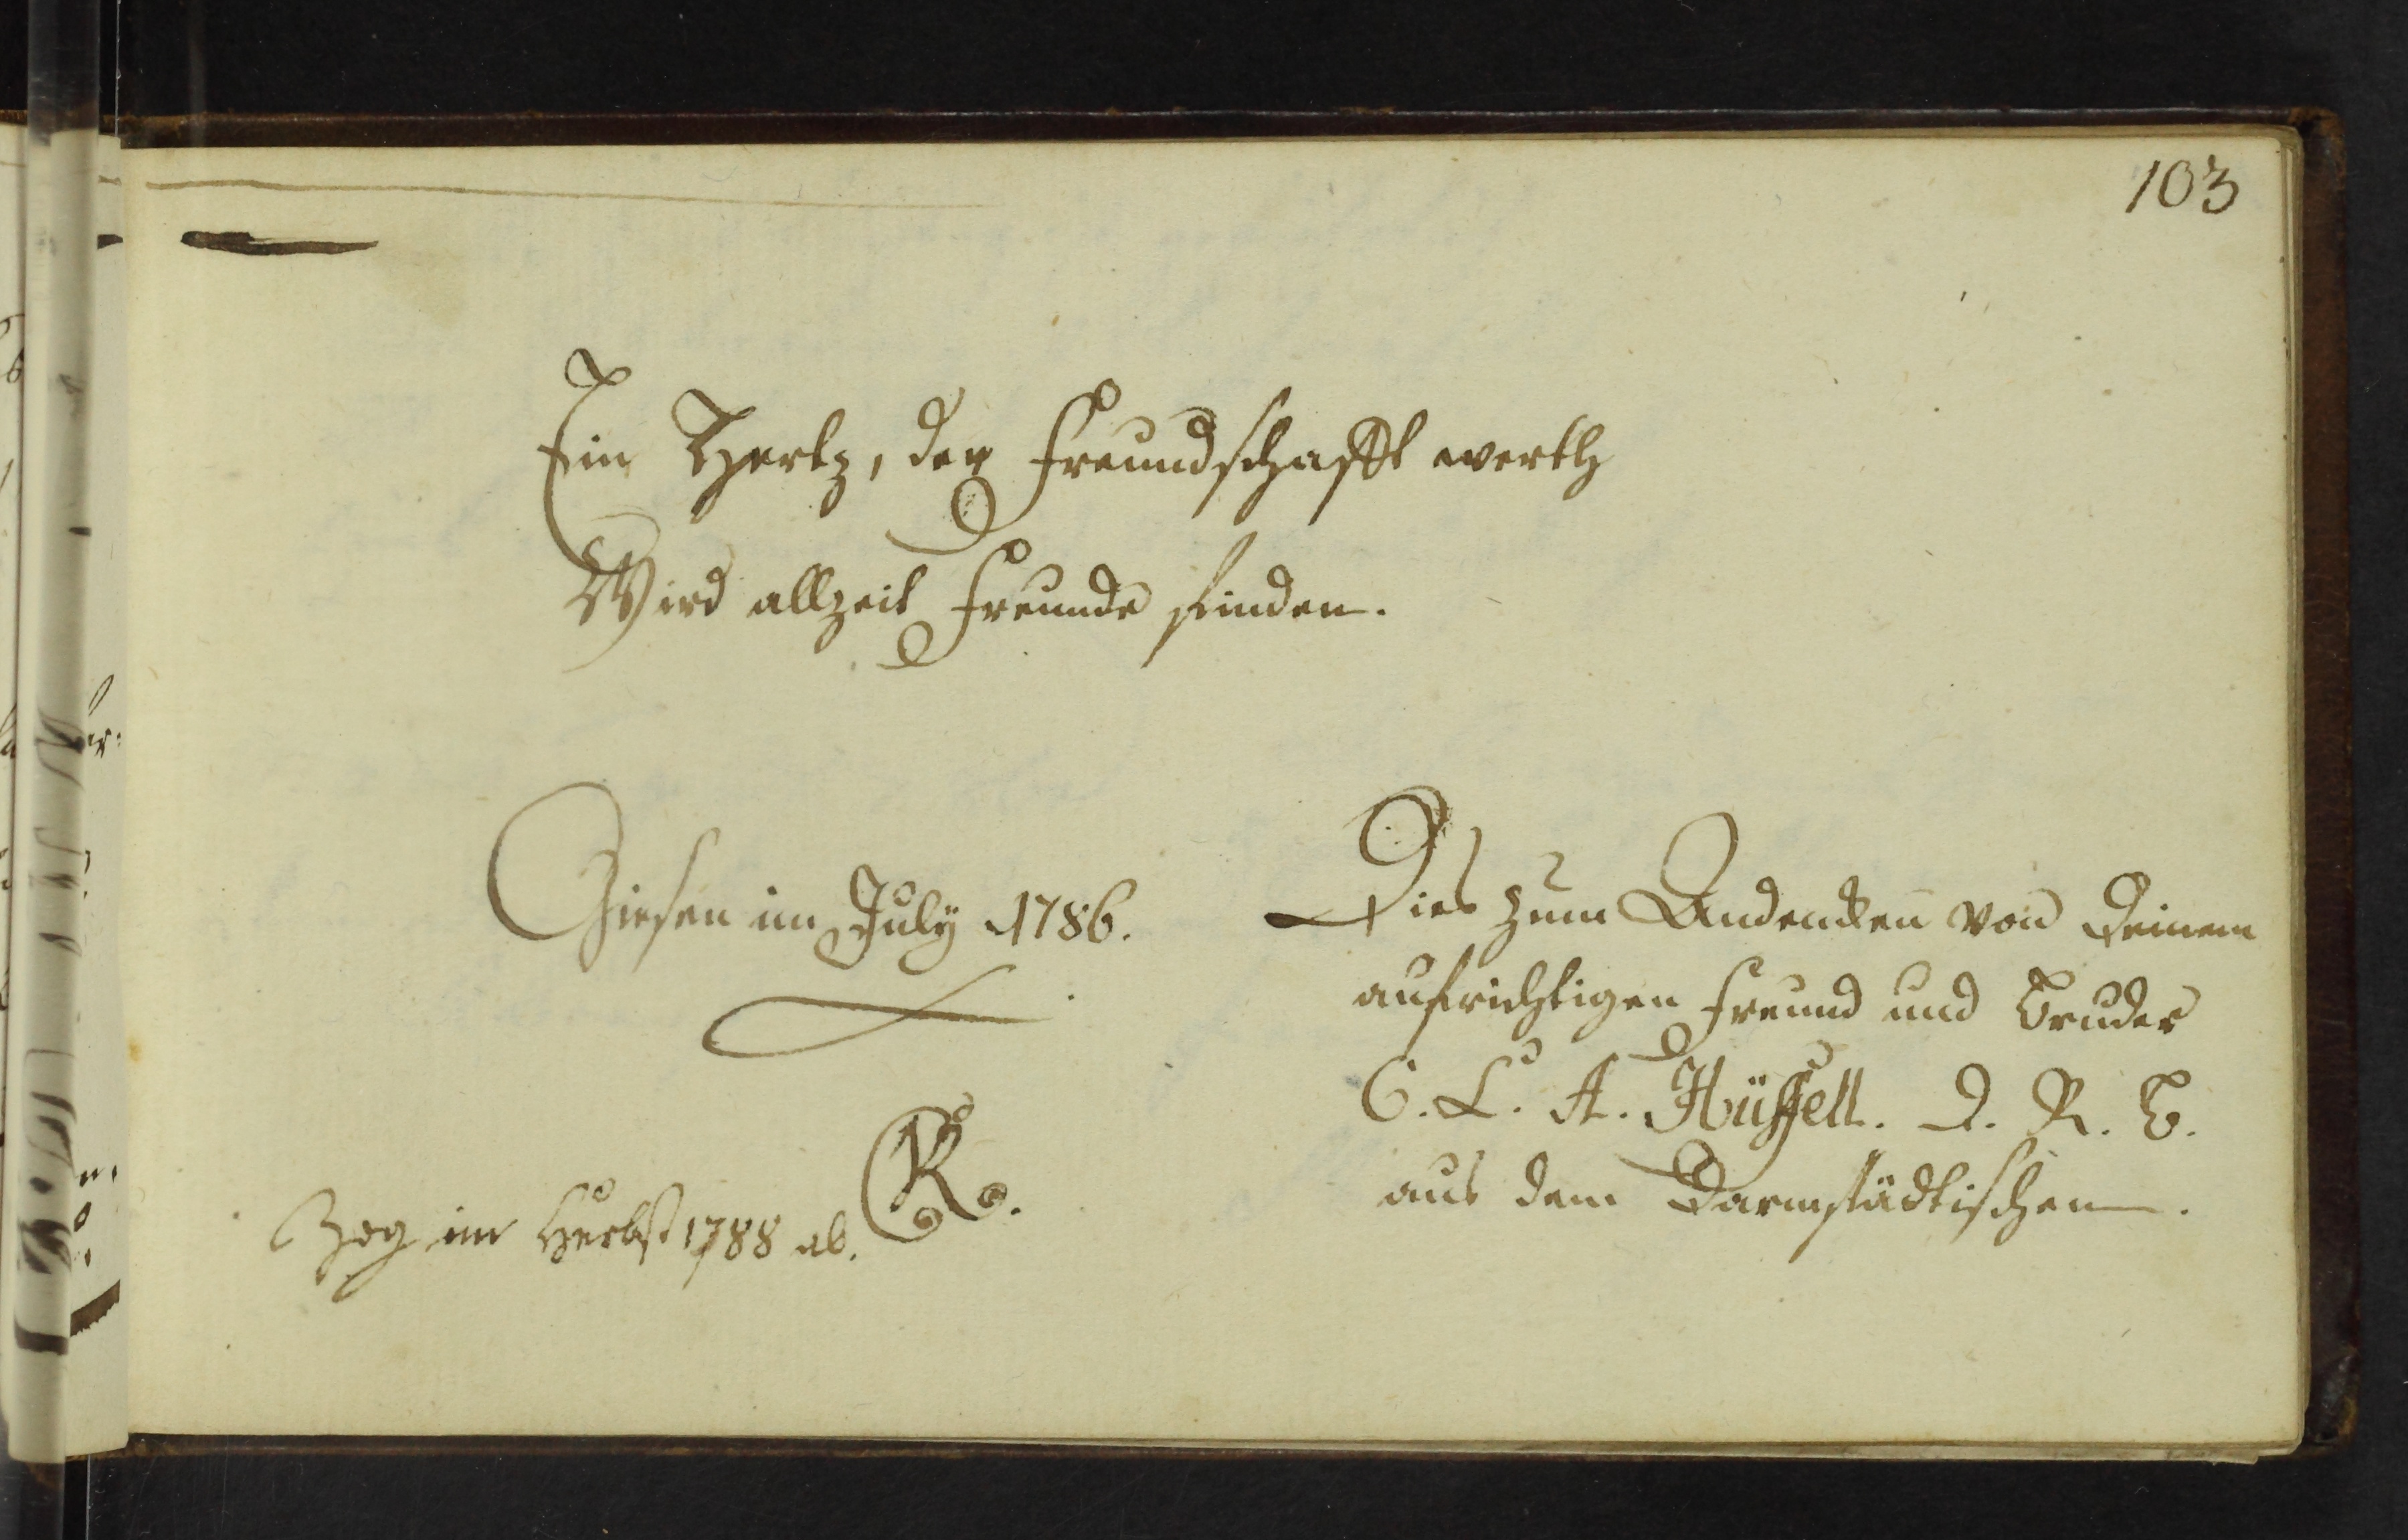 103
Ein Hertz, der Freundschafft werth
Wird allzeit Freunde finden.
Giesen im July 1786.
Dies zum Andencken von Deinem
aufrichtigen Freund und Bruder
C. L. A. Hüffell. D. R. B.
aus dem Darmstädtischen.
R.
Zog im Herbst 1788 ab.